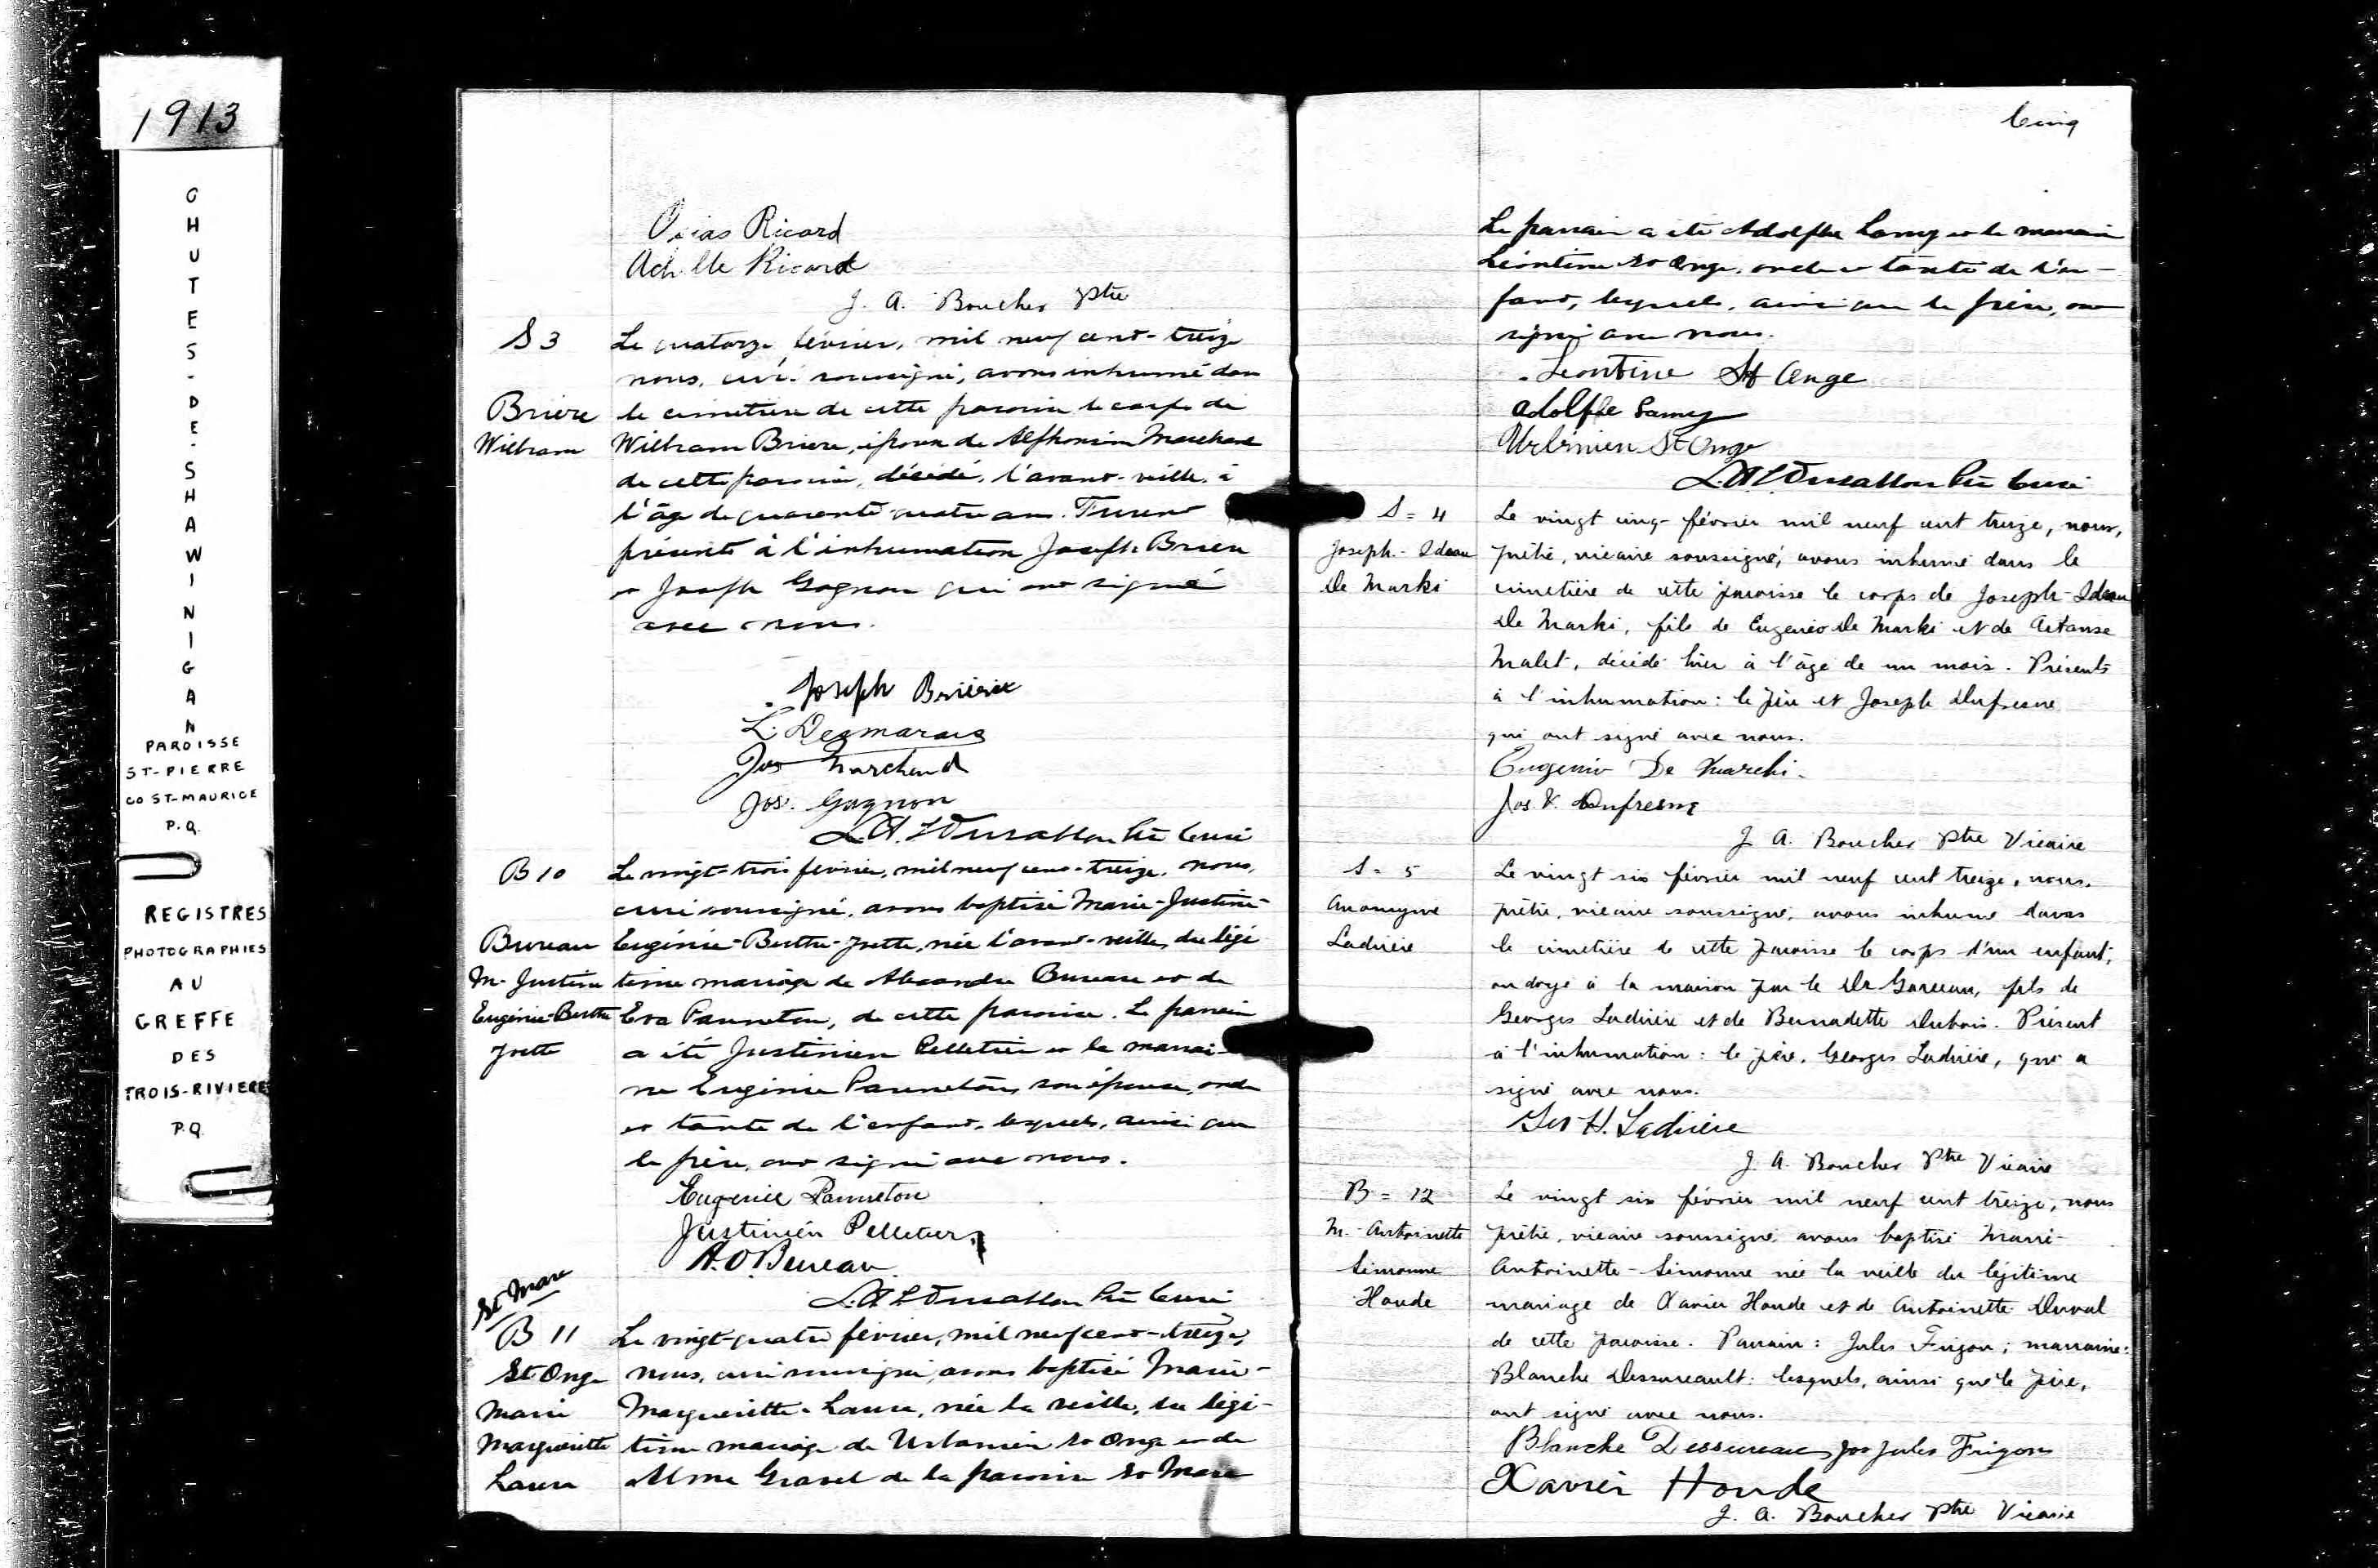 1913
CHUTES-DE-SHAWINIGAN
PAROISSE
ST-PIERRE
CO ST-MAURICE
P.Q.
REGISTRES
PHOTOGRAPHIES
AU
GREFFE
DES
TROIS-RIVIERE
P.Q.
Osias Ricard
Achille Ricard
J. A. Boucher Ptre
S 3
Brière
William
Le quatorze février, mil neuf cent-treize
nous, curé soussigné, avons inhumé dans
le cimetière de cette paroisse le corps de
William Briere, époux de Alphonsine Marchand
de cette paroisse, décédé, l'avant-veille, à
l'âge de quarante quatre ans. Furent
présents à l'inhumation Joseph Briere
et Joseph Gagnon qui ont signé
avec nous.
Joseph Brière
L. Desmarais
Jos Marchand
Jos. Gagnon
Ptre Curé
B 10
Bureau
M. Justine
Eugénie-Berthe
Le vingt-trois février, mil neuf cent-treize, nous,
curé soussigné, avons baptisé Marie-Justine-
Eugénie-Berthe-, née l'avant-veille, du légi-
time mariage de Alexandre Bureau et de
Eva Panneton, de cette paroisse. Le parrain
a été Justinien Pelletier et la marrai-
ne Eugénie Panneton, son épouse, oncle
et tante de l'enfant, lesquels, ainsi que
le père, ont signé avec nous.
Eugenie Panneton
Justinien Pelletier
A. O. Bureau
Ptre Curé
St Marc
B 11
St Onge
Marie
Marguerite
Laura
Le vingt-quatre février, mil neuf cent-treize,
nous, curé soussigné, avons baptisé Marie-
Marguerite-Laura, née la veille, du légi-
time mariage de Urbanien St Onge et de
Alma Gravel de la paroisse St Marc
Cinq
Le parrain a été Adolphe Lamy et la marraine
Léontine St Onge, oncle et tante de l'en-
fant, lesquels, ainsi que le père, ont
signé avec nous.
Leontine St Onge
Adolphe Lamy
St Onge
Ptre Curé
S = 4
Joseph-
De Marki
Le vingt cinq février mil neuf cent treize, nous,
prêtre, vicaire soussigné, avons inhumé dans le
cimetière de cette paroisse le corps de Joseph-
De Marki, fils de Eugenio De Marki et de
Malet, décédé hier à l'âge de un mois. Présents
à l'inhumation: le père et Joseph Dufresne
qui ont signé avec nous.
Eugenio De Marchi.
Jos. V. Dufresne
J A. Boucher Ptre Vicaire
S = 5
Anonyme
Ladrière
Le vingt six février mil neuf cent treize, nous,
prêtre, vicaire soussigné, avons inhumé dans
le cimetière de cette paroisse le corps d'un enfant,
ondoyé à la maison par le Dr Garceau, fils de
Georges Ladrière et de Bernadette Dubois. Présent
à l'inhumation: le père, Georges Ladrière, qui a
signé avec nous.
Geo H. Ladrière
J. A. Boucher Ptre Vicaire
B = 12
M.-Antoinette
Simonne
Houde
Le vingt six février mil neuf cent treize, nous
prêtre, vicaire soussigné, avons baptisé Marie-
Antoinette-Simonne née la veille du légitime
mariage de Xavier Houde et de Antoinette Duval
de cette paroisse. Parrain: Jules Frigon; marraine:
Blanche Dessureault: lesquels, ainsi que le père,
ont signé avec nous.
Blanche Dessureau Jos Jules Frigon
Xavier Houde
J. A. Boucher Ptre Vicaire